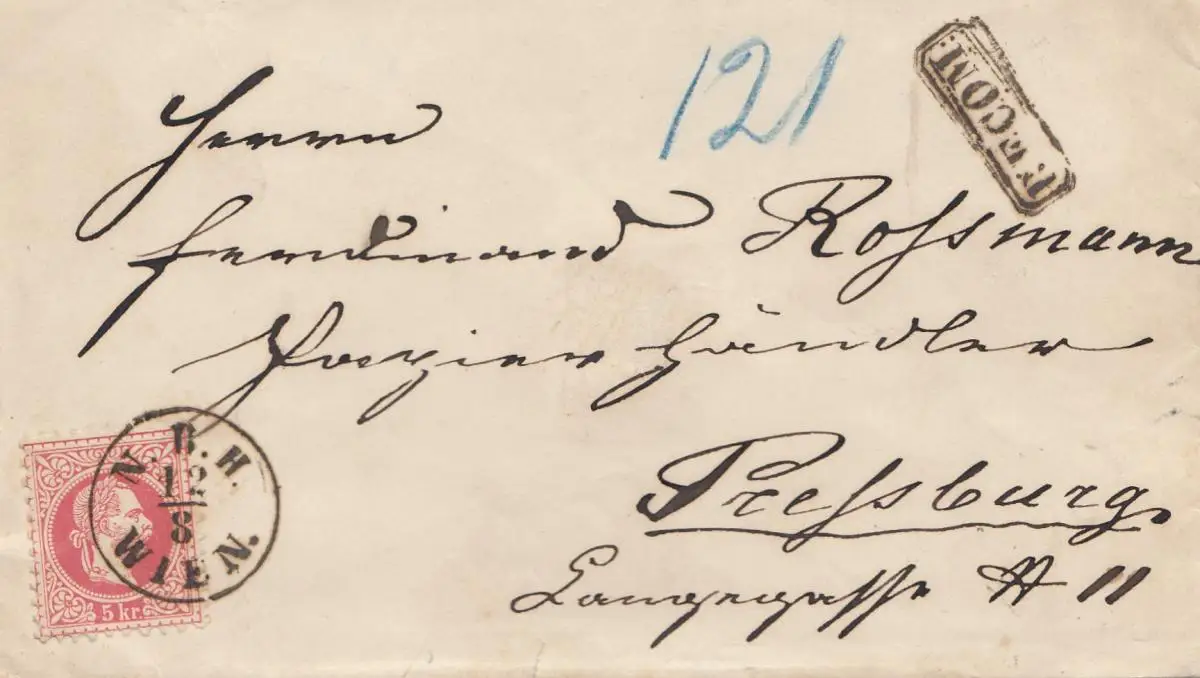 121
P.E.COM.
Herrn
Ferdinand Rossmann
Papier Händler
Pressburg.
Langegasse # 11
N.B.H.
12
8
WIEN.
5 kr.